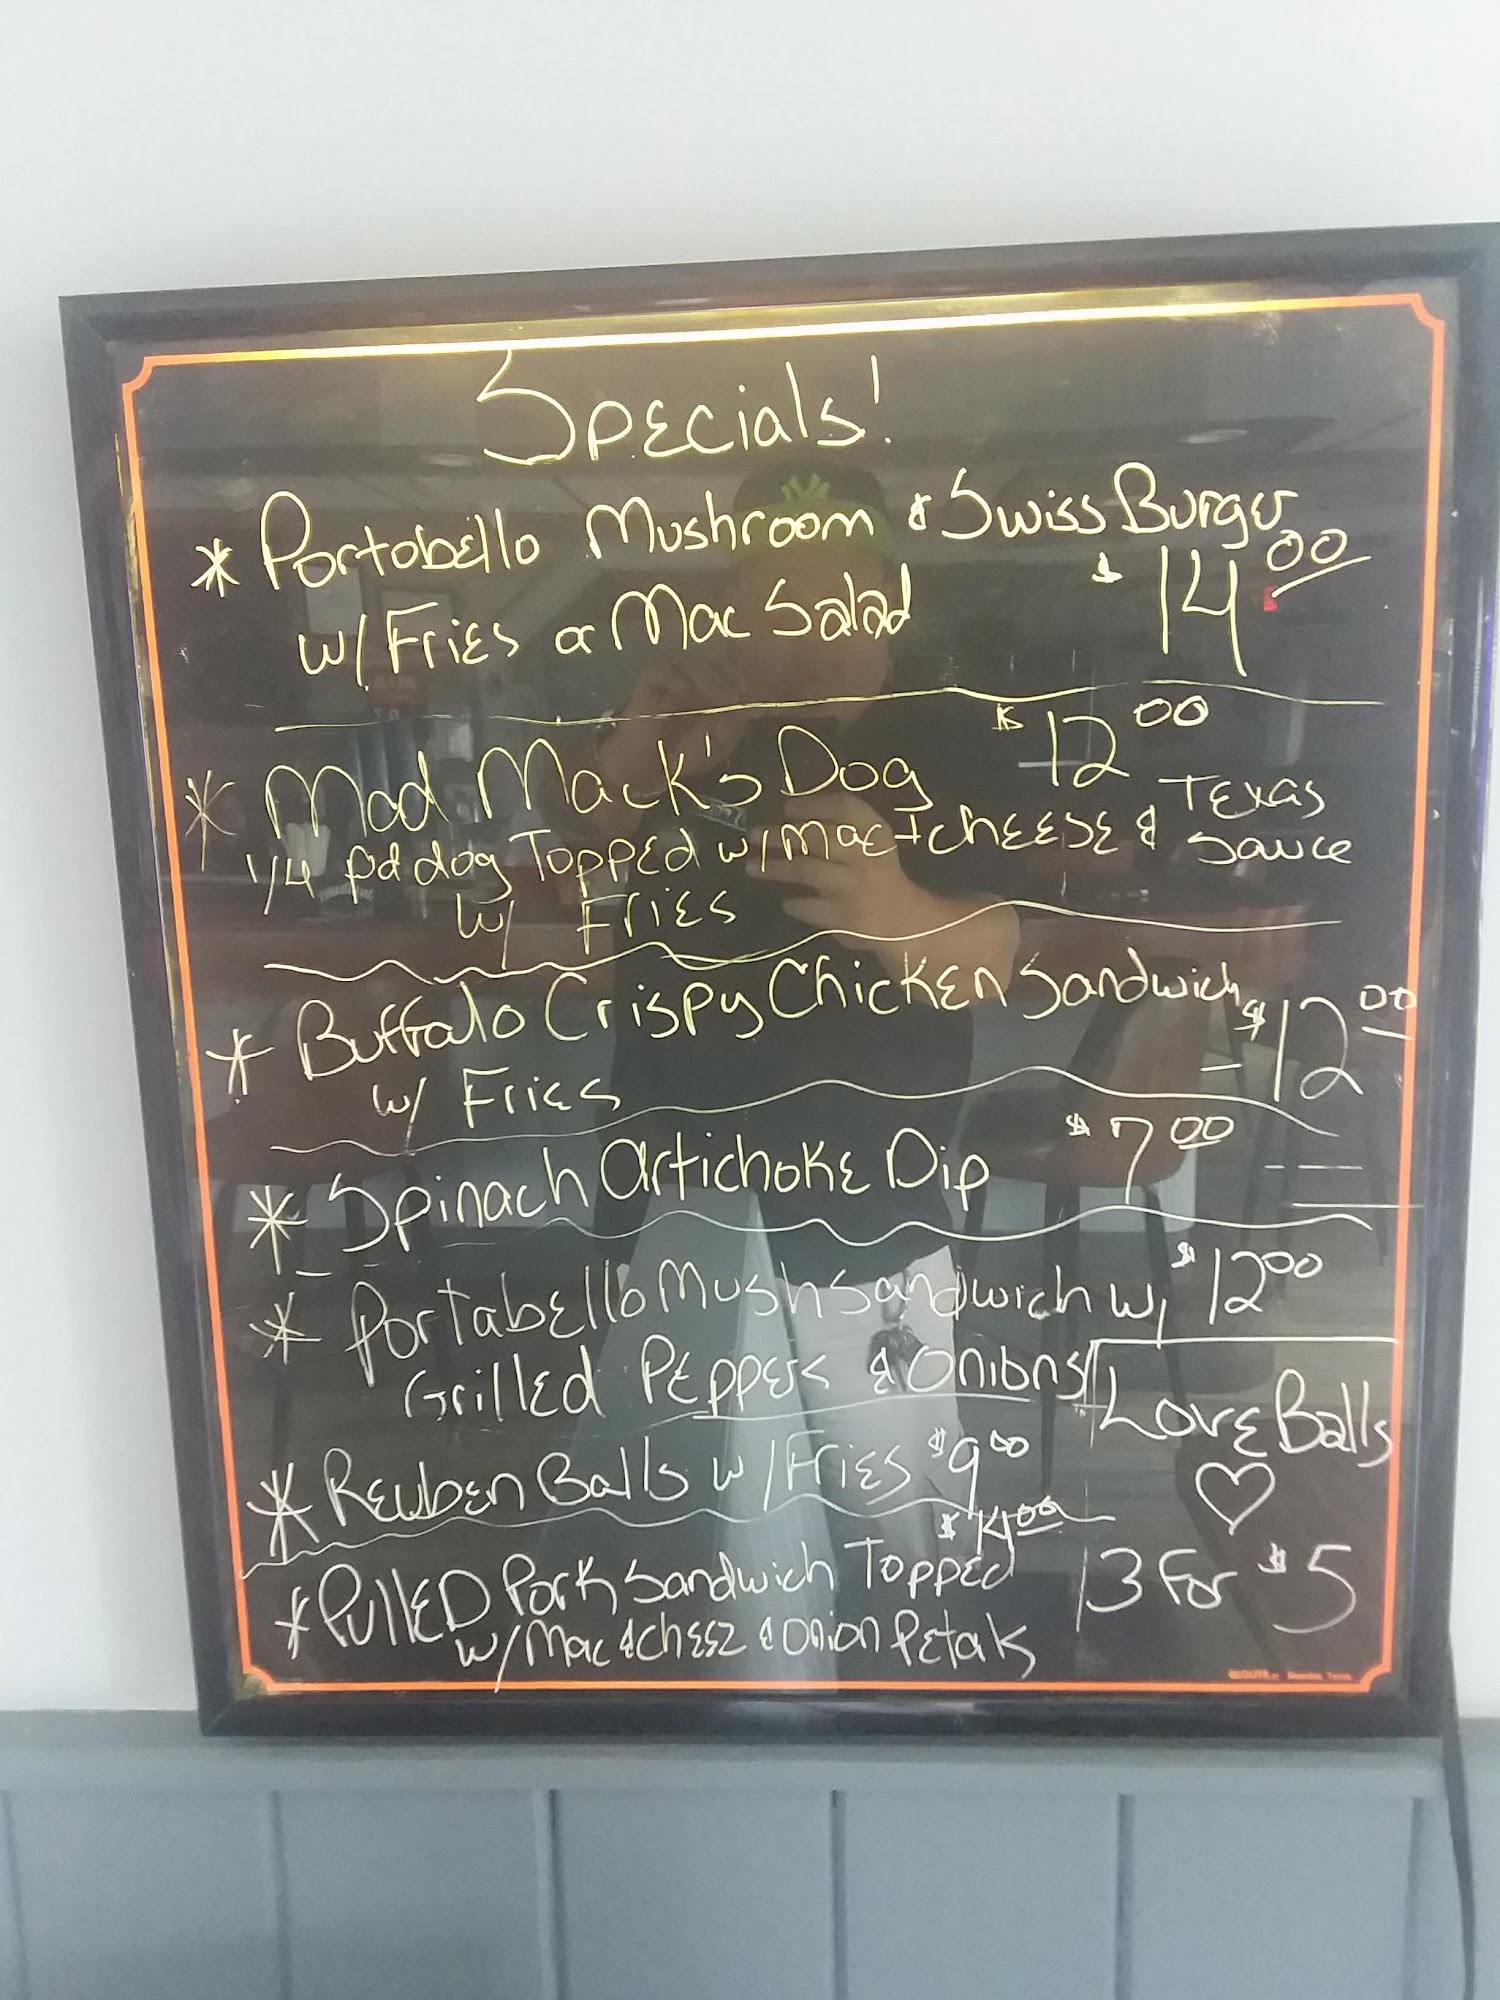 Specials!
* Portobello Mushroom & Swiss Burger
w/ Fries or Mac Salad $14.00
* Mad Mack's Dog $12.00
1/4 pd dog Topped w/ Mac + cheese & Texas
Sauce
w/ Fries
* Buffalo Crispy Chicken Sandwich
w/ Fries - $12.00
* Spinach Artichoke Dip $7.00
* Portabello Mush Sandwich w/ $12.00
Grilled Peppers & Onions
* Reuben Balls w/ Fries $9.00
* Pulled Pork Sandwich Topped $14.00
w/ Mac & cheez & Onion Petals
Love Balls
♡
3 For $5